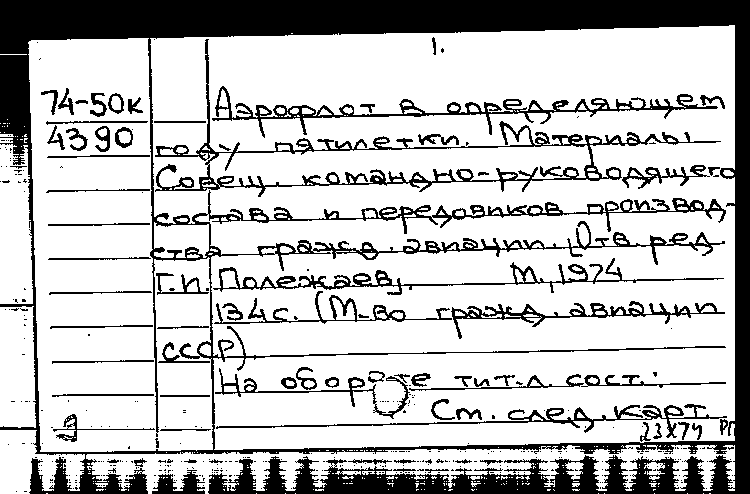 1.
74-50к
4390
Аэрофлот в определяющем
году пятилетки. Материалы
Совещ. командно-руководящего
состава и передовиков производ-
ства гражд. авиации. [Отв. ред.
Г.И. Полежаев]. М., 1974.
134 с. (М-во гражд. авиации
СССР).
На обороте тит. л. сост.:
См. след. карт.
23 X 74